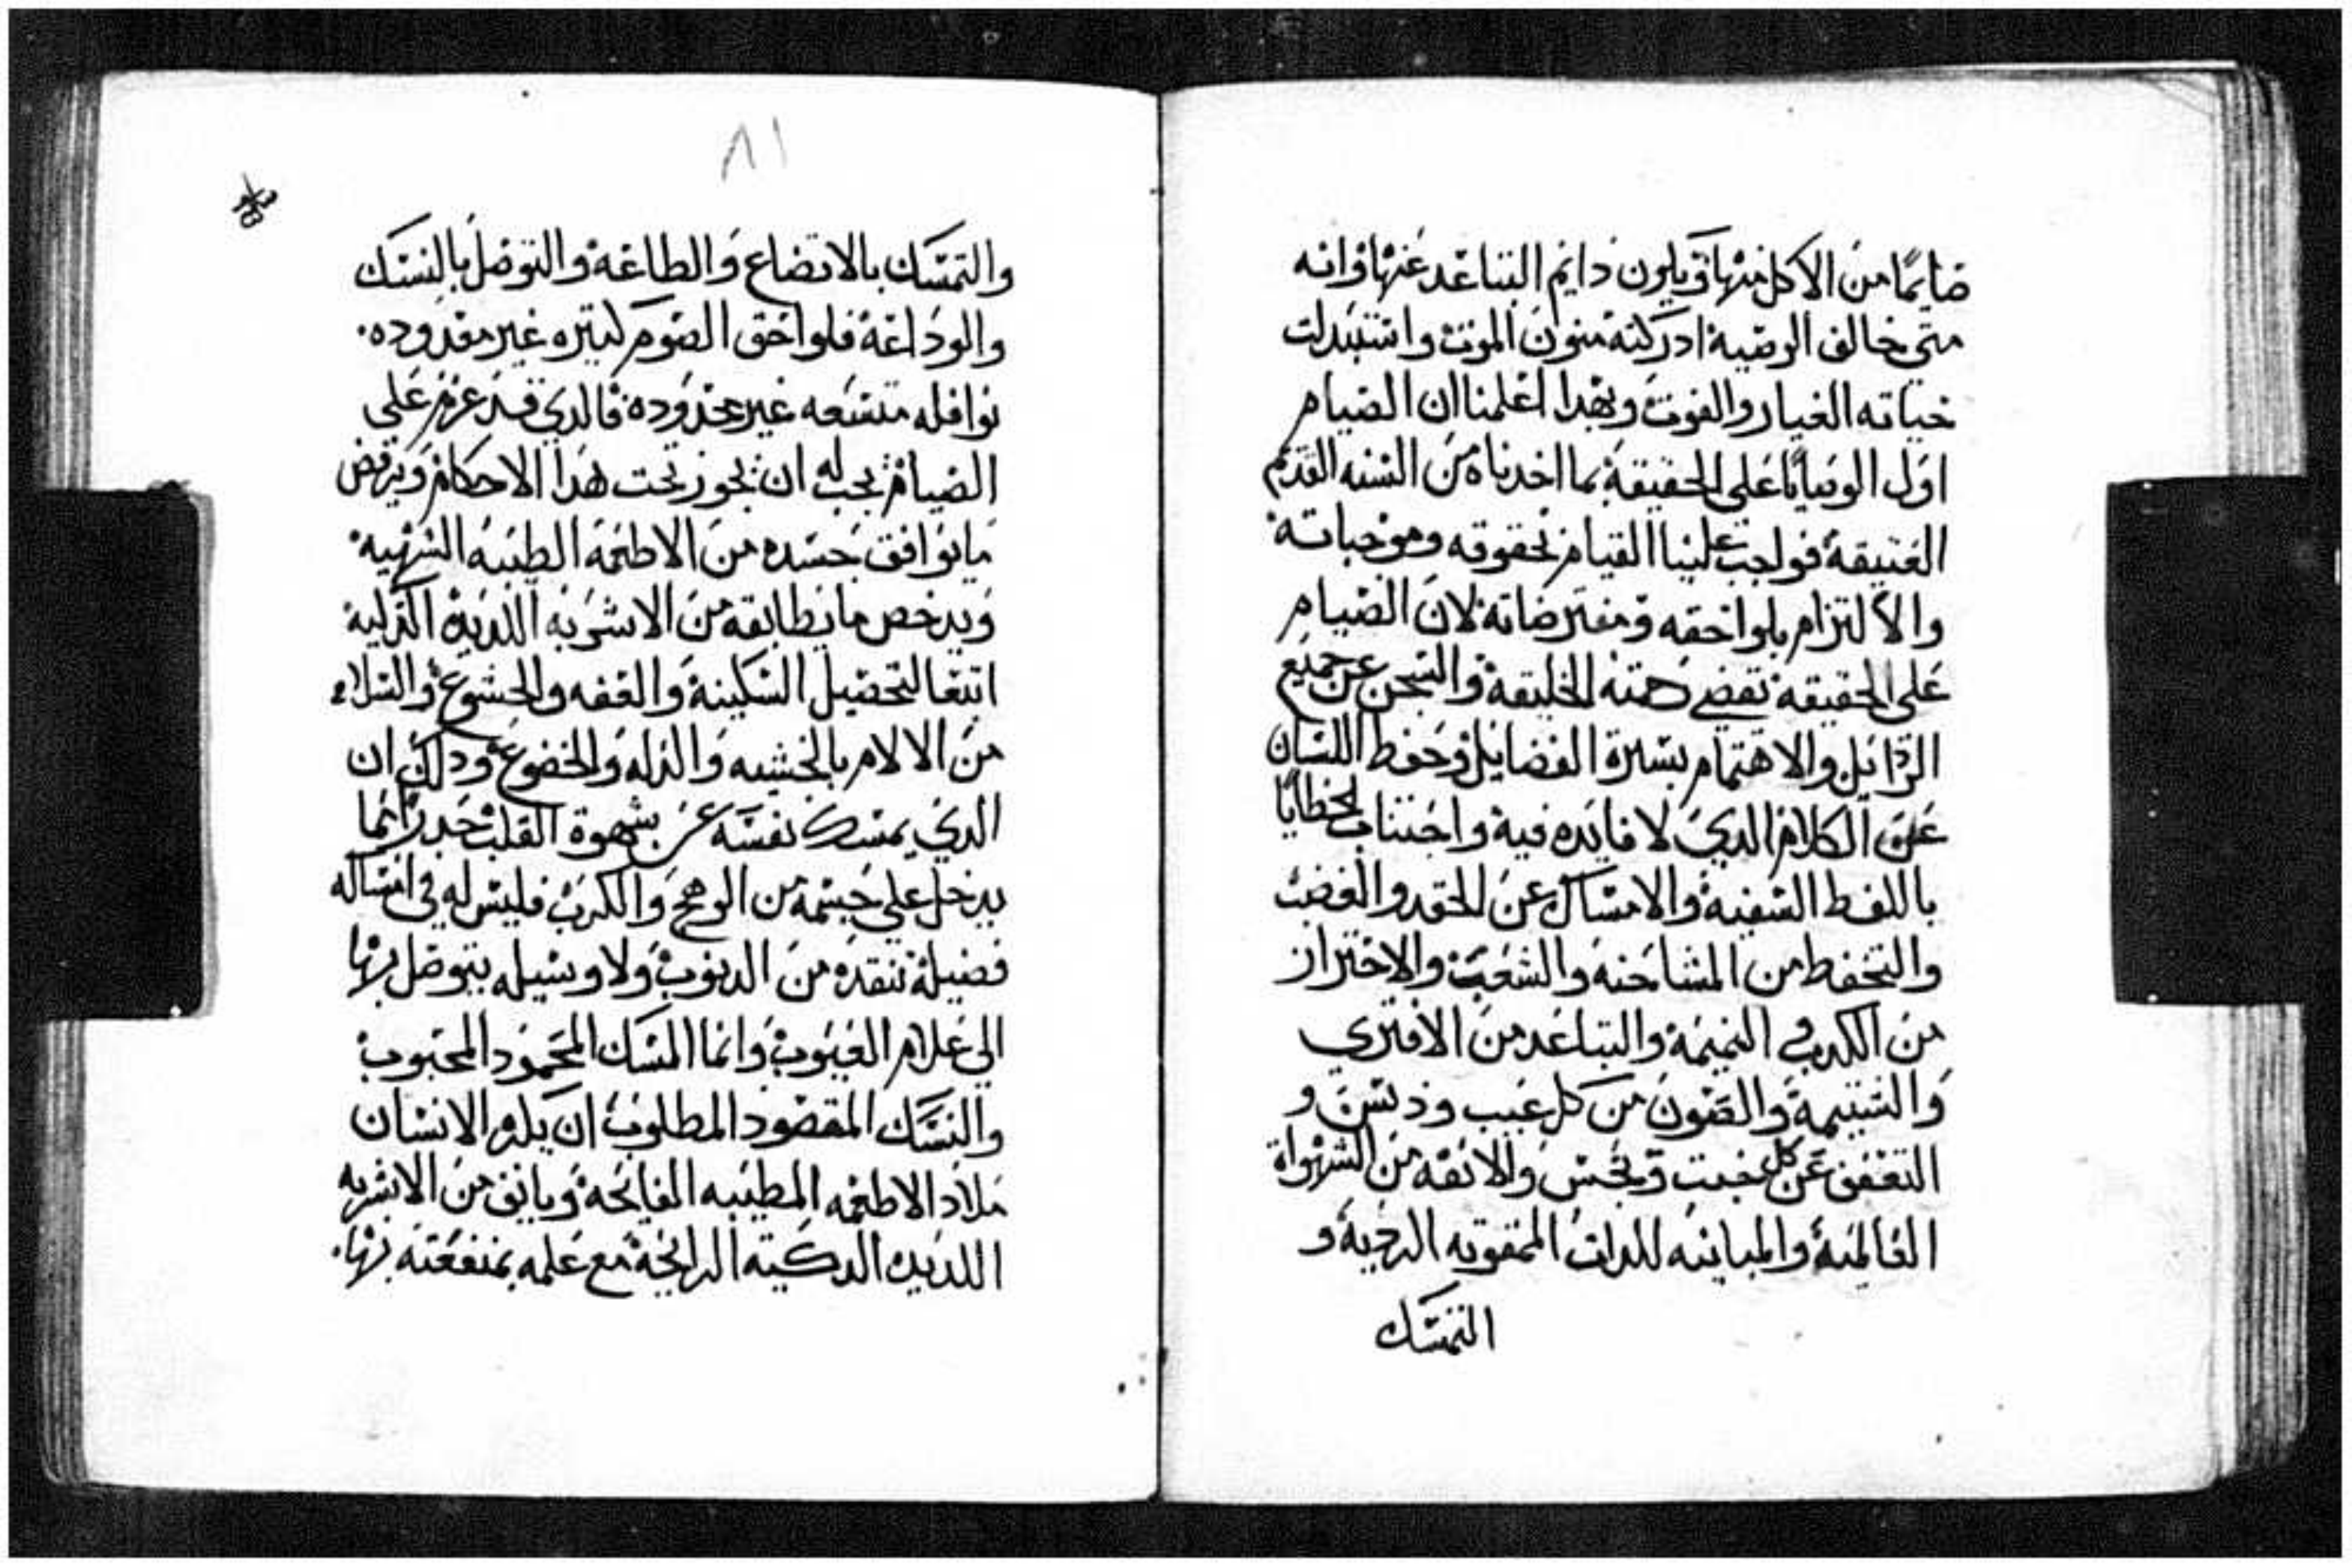 صايمًا من الاكل منها ويكون دايم التباعد عنها وانه
متي خالف الوصية ادركته منون الموت واستبدلت
حياته الغيار والفوت وبهدا اعلمنا ان الصيام
اول الوصايا علي الحقيقة بما اخدناه من السنه القديم
العتيقة فواجب علينا القيام بحقوقه وموجباته
والالتزام بلواحقه ومفترضاته لان الصيام
علي الحقيقة تقضي هته الخليقة والسجن عن جميع
الردايل والاهتمام بسيرة الفضايل وحفظ اللسان
عن الكلام الدي لا فايده فية واجتناب الخطايا
باللفط السفية والامساك عن الحقد والغضب
والتحفط من المشاحنه والشغب والاحتراز
من الكدب في النميمة والتباعد من الافتري
والشتيمة والصون من كل عيب ودنس و
التعفف عن كل خبث ونجس والانفه من الشهواة
العالمية والمباينه للدات الممقوته الرديه و
التمسك
٨١
والتمسك بالاتضاع والطاعة والتوصل بالنسك
والوداعة فلواحق الصوم كتيره غير معدوده
نوافله متسعه غير محدوده فالدي قد عزم علي
الصيام يجب له ان يجوز تحت هدا الاحكام ويرفض
ما يوافق جسده من الاطعمة الطيبه الشهية
ويدحض ما يطابقه من الاشربه اللديدة الزكية
ابتغا لتحصيل السكينة والعفه والخشوع والسلامه
من الالام بالخشيه والدله والخضوع ودلك ان
الدي يمسك نفسه عن شهوة القلب حدرًا مما
يدخل علي جسمه من الوهج والكرب فليس له في امساكه
فضيلة تنقده من الدنوب ولا وسيله يتوصل بها
الي علام الغيوب وانما المسك المحمود المحبوب
والنسك المقصود المطلوب ان يكره الانسان
ملاد الاطعمه المطيبه الفايحة ويانف من الاشربه
اللديده الدكية الرايحة مع علمه بمنفعته بها